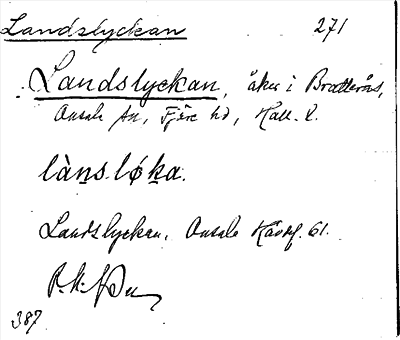 Landslyckan 271
Landslyckan, åker i Bratterås,
Onsala sn, Fjäre hd, Hall. l.
làn̠s.løk̠a.
Landslyckan. Onsala Hävdf. 61.
387